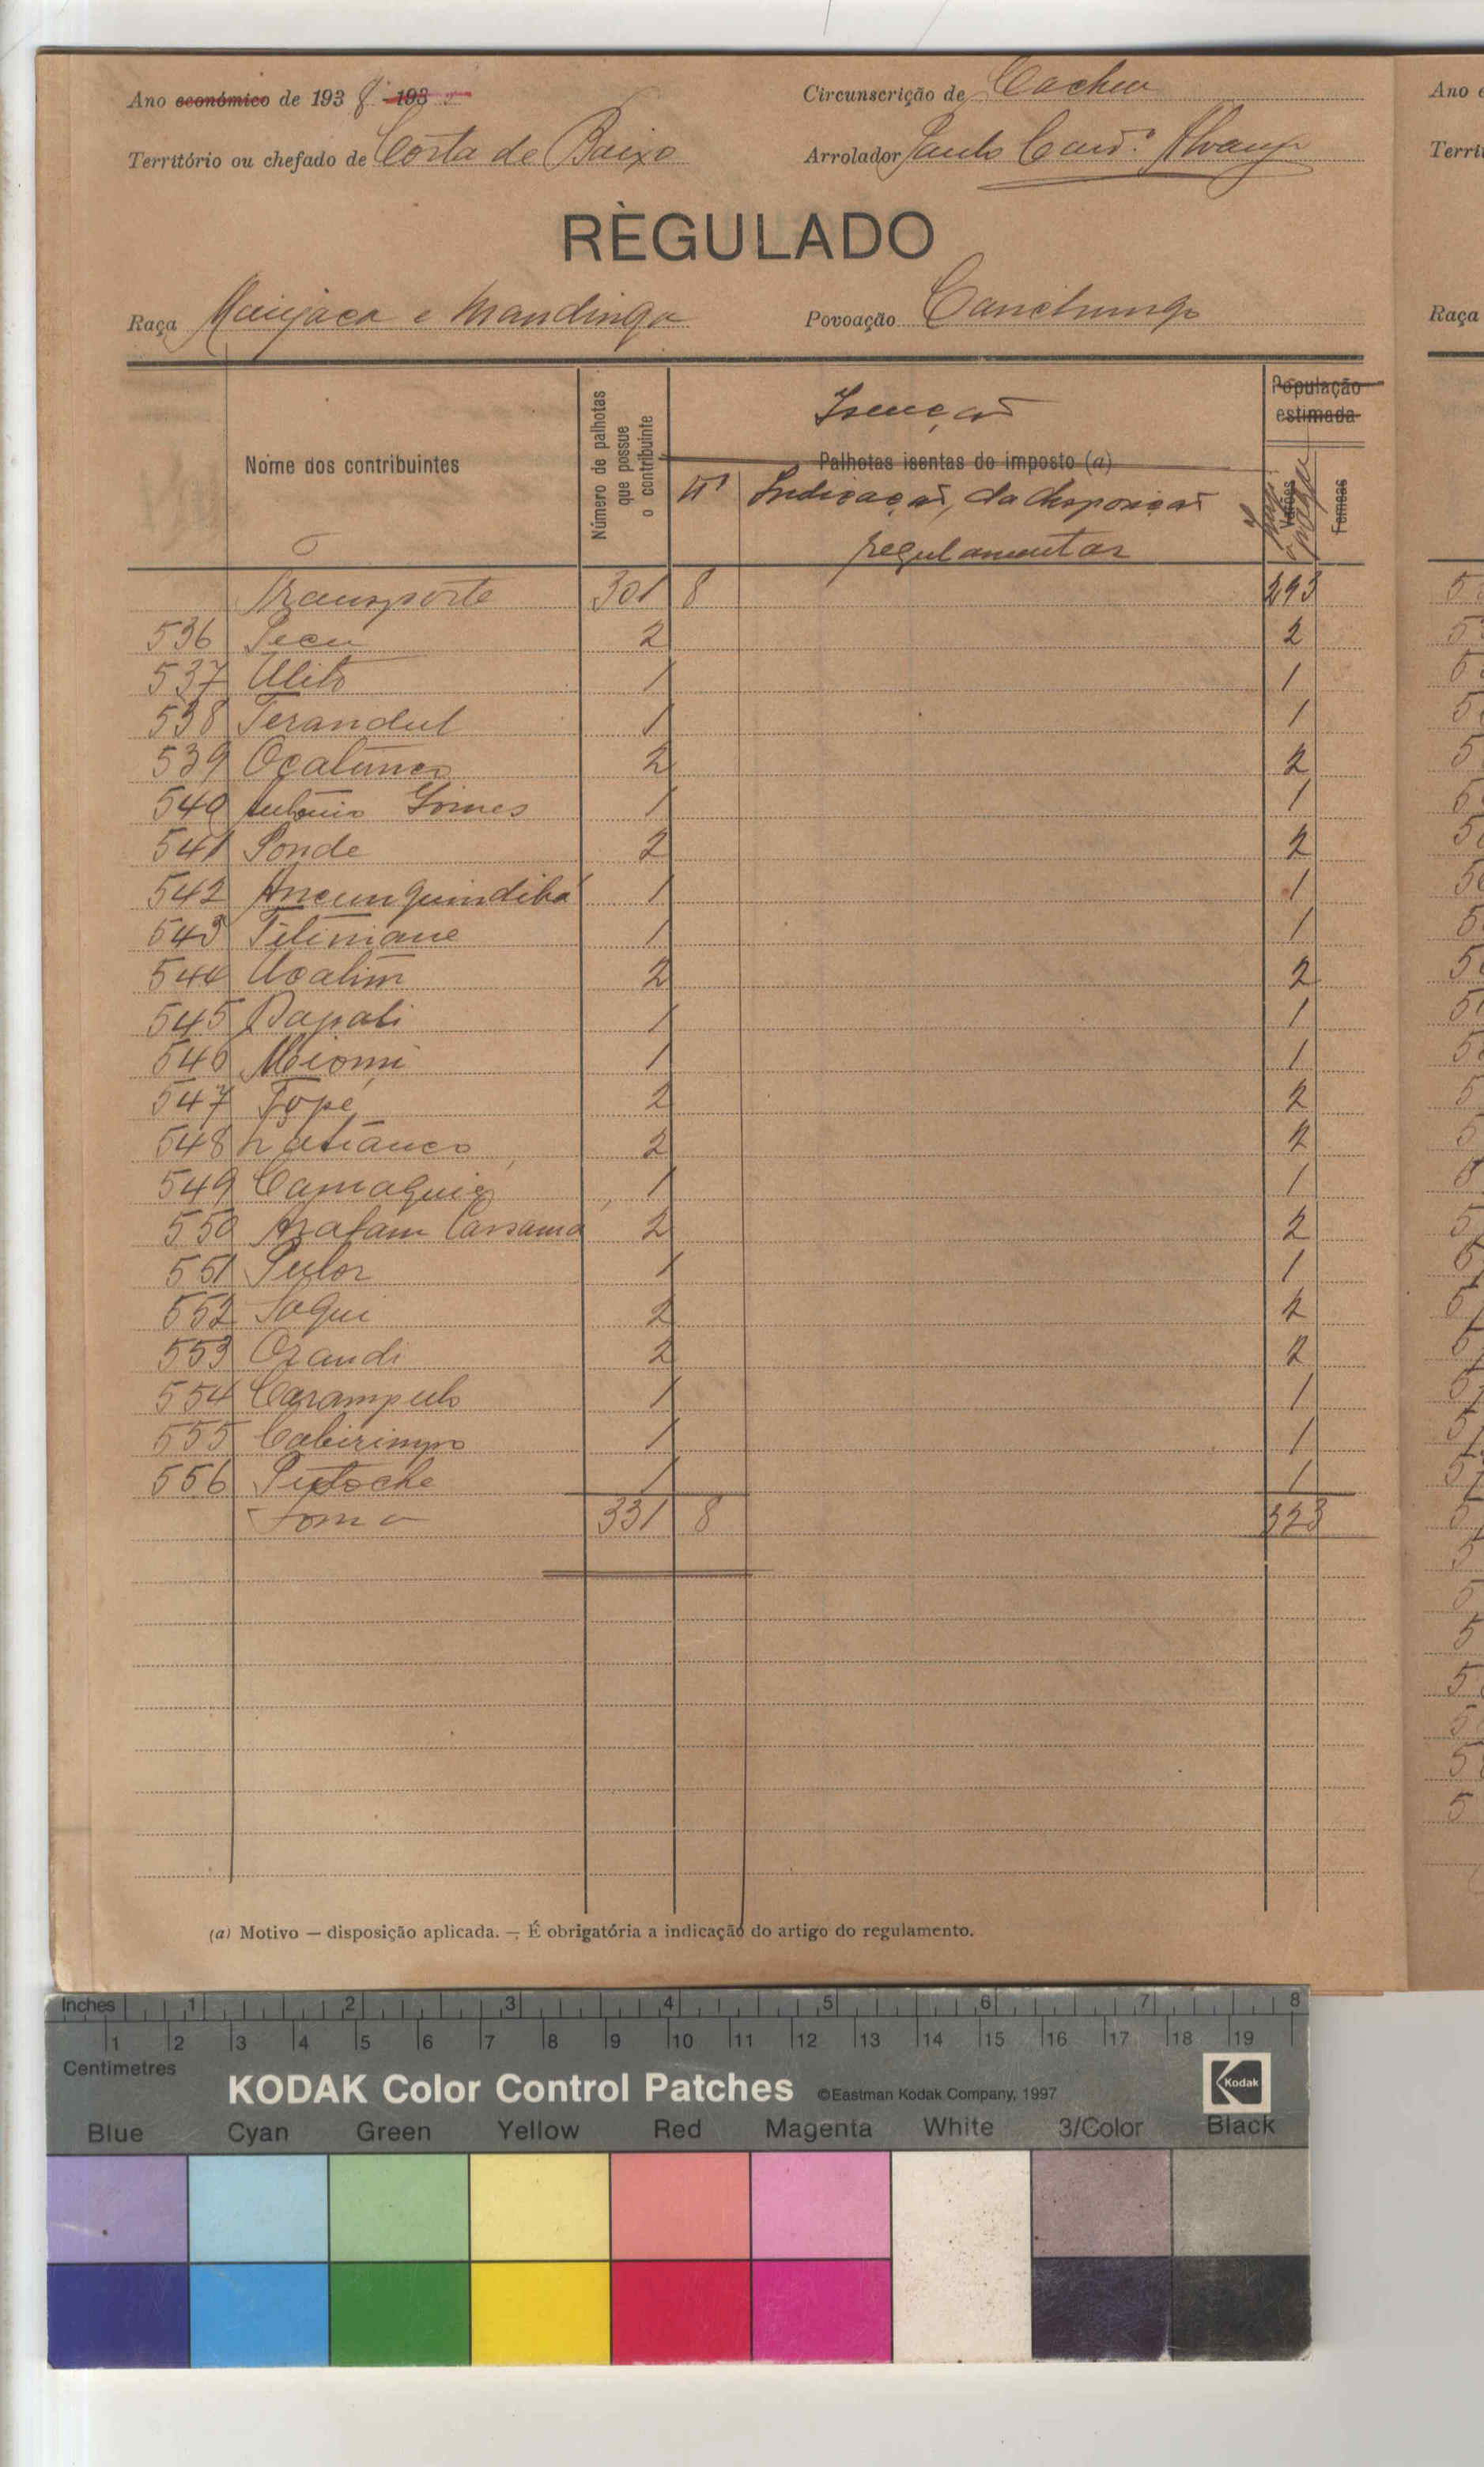 Ano económico de 1938 - 193
Circunscrição de Cacheu
Território ou chefado de Costa de Baixo
Arrolador Paulo
RÈGULADO
Raça Manjaca e Mandinga
Povoação Canchungo
Nome dos contribuintes
Número de palhotas que possue o contribuinte
Isenção
Palhotas isentas do imposto (a)
Nº Indicação, da disposição regulamentar
População estimada
Varões
Femeas
Transporte 301 8 293
536 Secu 2 2
537 Ulito 1 1
538 Terandul 1 1
539 Ocatunco 2 2
540 António Gomes 1 1
541 Ponde 2 2
542 Ancunquindiba 1 1
543 Filiniane 1 1
544 Ucalim 2 2
545 Papati 1 1
546 Miomi 1 1
547 Fope 2 2
548 2 2
549 Camaquié 1 1
550 Arafam Cassama 2 2
551 Pulor 1 1
552 Saqui 2 2
553 Orandi 2 2
554 Carampulo 1 1
555 Cabirimpo 1 1
556 Putoche 1 1
Soma 331 8 323
(a) Motivo — disposição aplicada. — É obrigatória a indicação do artigo do regulamento.
Ano
Terri
Raça
Inches 1 2 3 4 5 6 7 8
1 2 3 4 5 6 7 8 9 10 11 12 13 14 15 16 17 18 19
Centimetres
KODAK Color Control Patches ©Eastman Kodak Company, 1997 Kodak
Blue Cyan Green Yellow Red Magenta White 3/Color Black